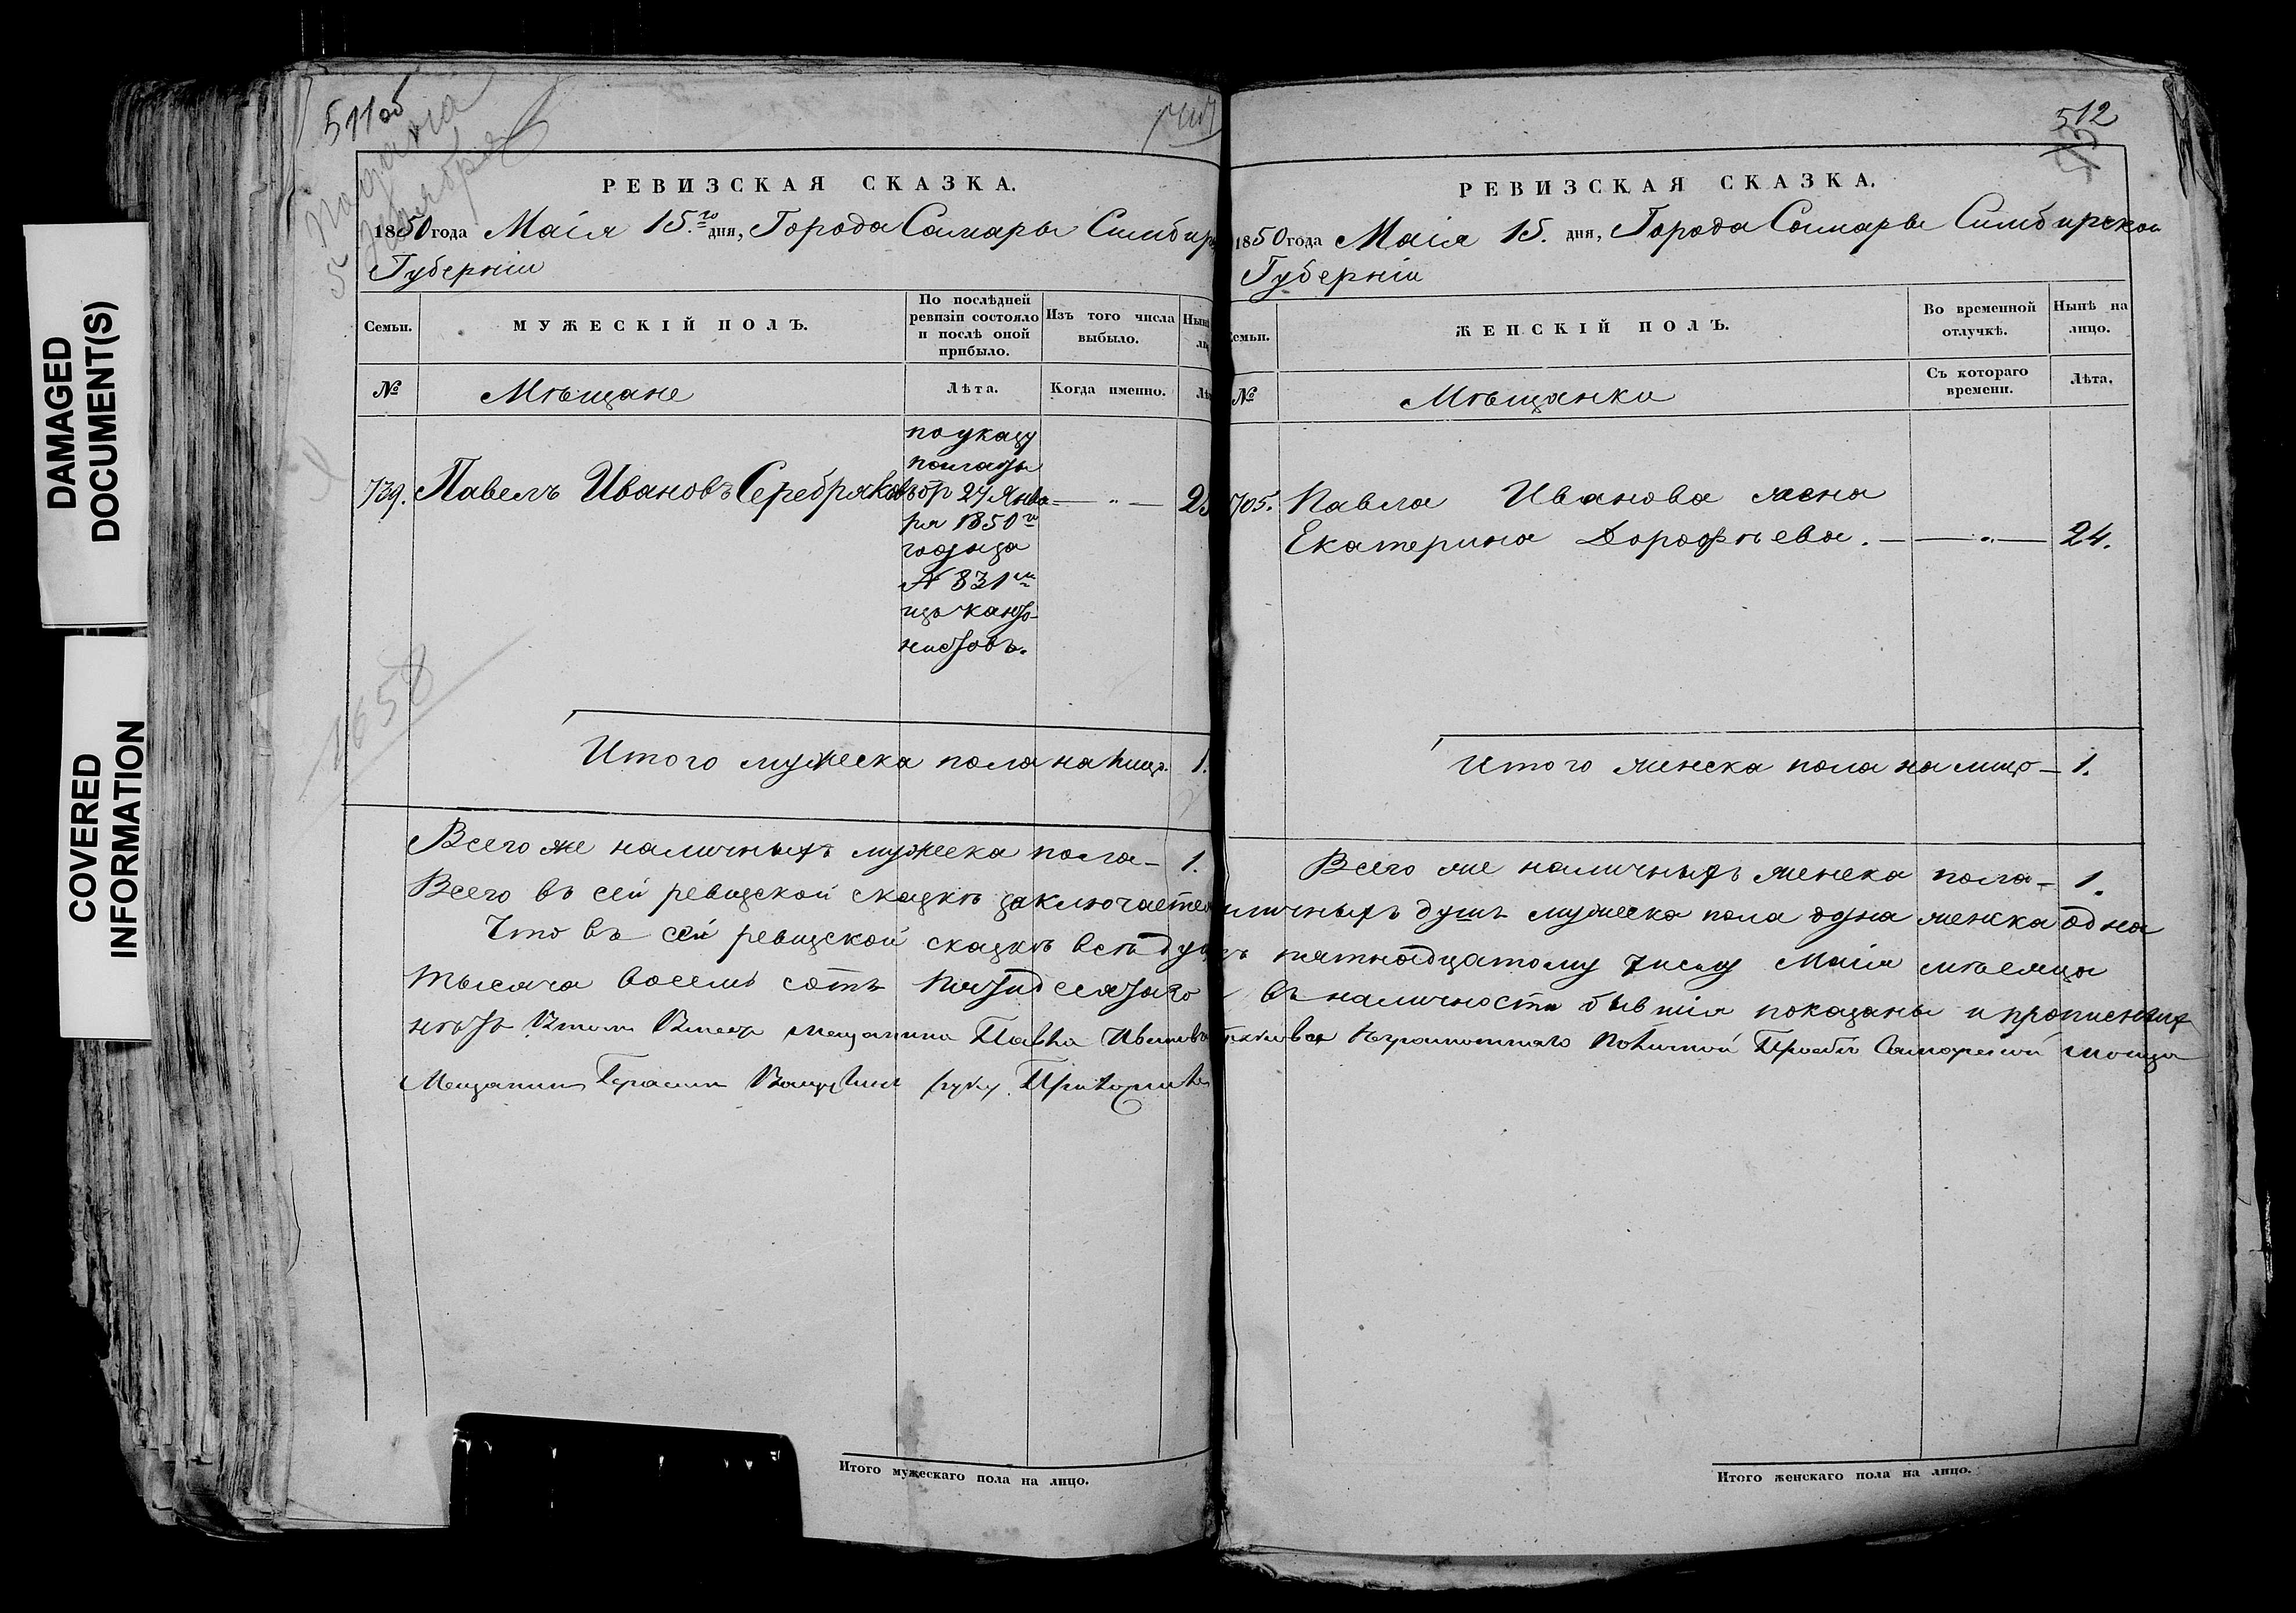 DAMAGED
DOCUMENT(S)
COVERED
INFORMATION
511об
Подана
5 Ноября
1658
РЕВИЗСКАЯ СКАЗКА.
1850 года Маія 15.го дня, Города Самары Симбир
Губерніи
Семьи.
МУЖЕСКІЙ ПОЛЪ.
По послѣдней
ревизіи состояло
и послѣ оной
прибыло.
Изъ того числа
выбыло.
№
Мѣщане
Лѣта.
Когда именно.
739. Павелъ Ивановъ Серебряковъ
по указу
палаты
от 27 Янва-
ря 1850го
года за
№ 831м
изъ канто-
нистовъ.
Итого мужеска пола на лицо. 1.
Всего же наличныхъ мужеска пола - 1.
Всего въ сей ревизской сказкѣ заключается
Что въ сей ревизской сказкѣ всѣ
тысяча восемь сотъ пятидесятаго
нѣтъ Вместо мещанина Павла
Мещанин Герасим руку Приложил
Итого мужескаго пола на лицо.
512
РЕВИЗСКАЯ СКАЗКА.
1850 года Маія 15. дня, Города Самары Симбирской
Губерніи
ЖЕНСКІЙ ПОЛЪ.
Во временной
отлучкѣ.
Нынѣ на
лицо.
№
Мѣщанки
Съ котораго
времени.
Лѣта.
705. Павла Иванова жена
Екатерина Дорофѣева. — — " — 24.
Итого женска пола на лицо - 1.
Всего же наличныхъ женска пола - 1.
личныхъ душъ мужеска пола одна женска одна
пятнадцатому числу Маія мѣсяца
въ наличности бывшія показаны и прописныхъ
неграмотнаго Личной Прозбе Самарской
Итого женскаго пола на лицо.